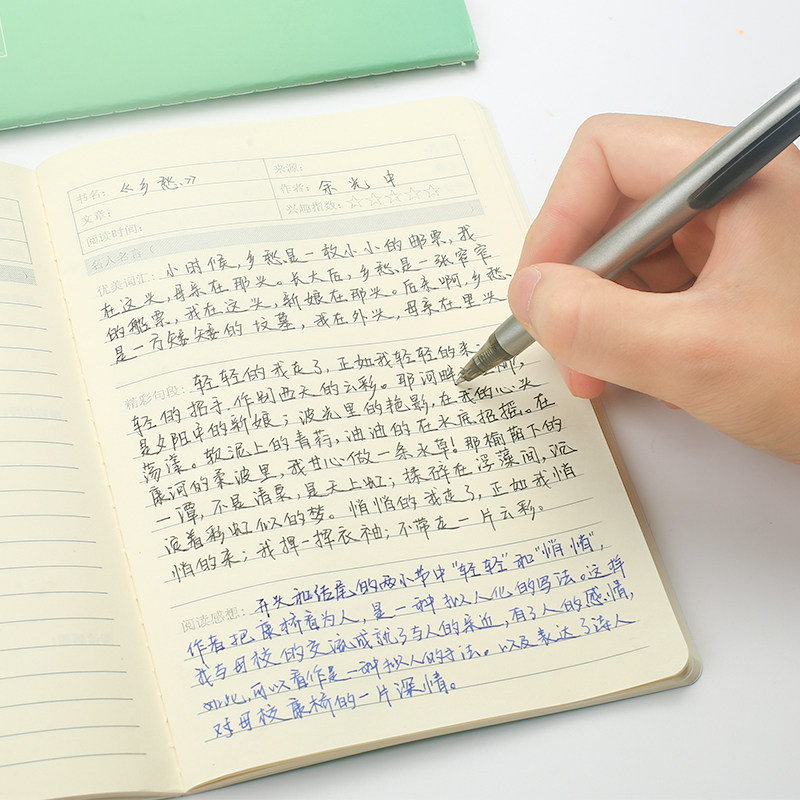 书名: 《乡愁》 来源:
文章: 作者: 余光中
阅读时间: 兴趣指数: ☆☆☆☆☆
名人名言 (
优美词汇: 小时候,乡愁是一枚小小的邮票,我
在这头,母亲在那头。长大后,乡愁是一张窄窄
的船票,我在这头,新娘在那头。后来啊,乡愁
是一方矮矮的坟墓,我在外头,母亲在里头
精彩句段: 轻轻的我走了,正如我轻轻的来
轻的招手,作别西天的云彩。那河畔
是夕阳中的新娘;波光里的艳影,在我的心头
荡漾。软泥上的青荇,油油的在水底招摇。在
康河的柔波里,我甘心做一条水草!那榆荫下的
一潭,不是清泉,是天上虹;揉碎在浮藻间,沉
淀着彩虹似的梦。悄悄的我走了,正如我悄
悄的来;我挥一挥衣袖;不带走一片云彩。
阅读感想: 开头和结尾的两小节中"轻轻"和"悄悄",
作者把康桥看为人,是一种拟人化的写法。这样
我与母校的交流成就了与人的亲近,有了人的感情,
如此,可以看作是一种拟人的手法。以及表达了诗人
对母校康桥的一片深情。